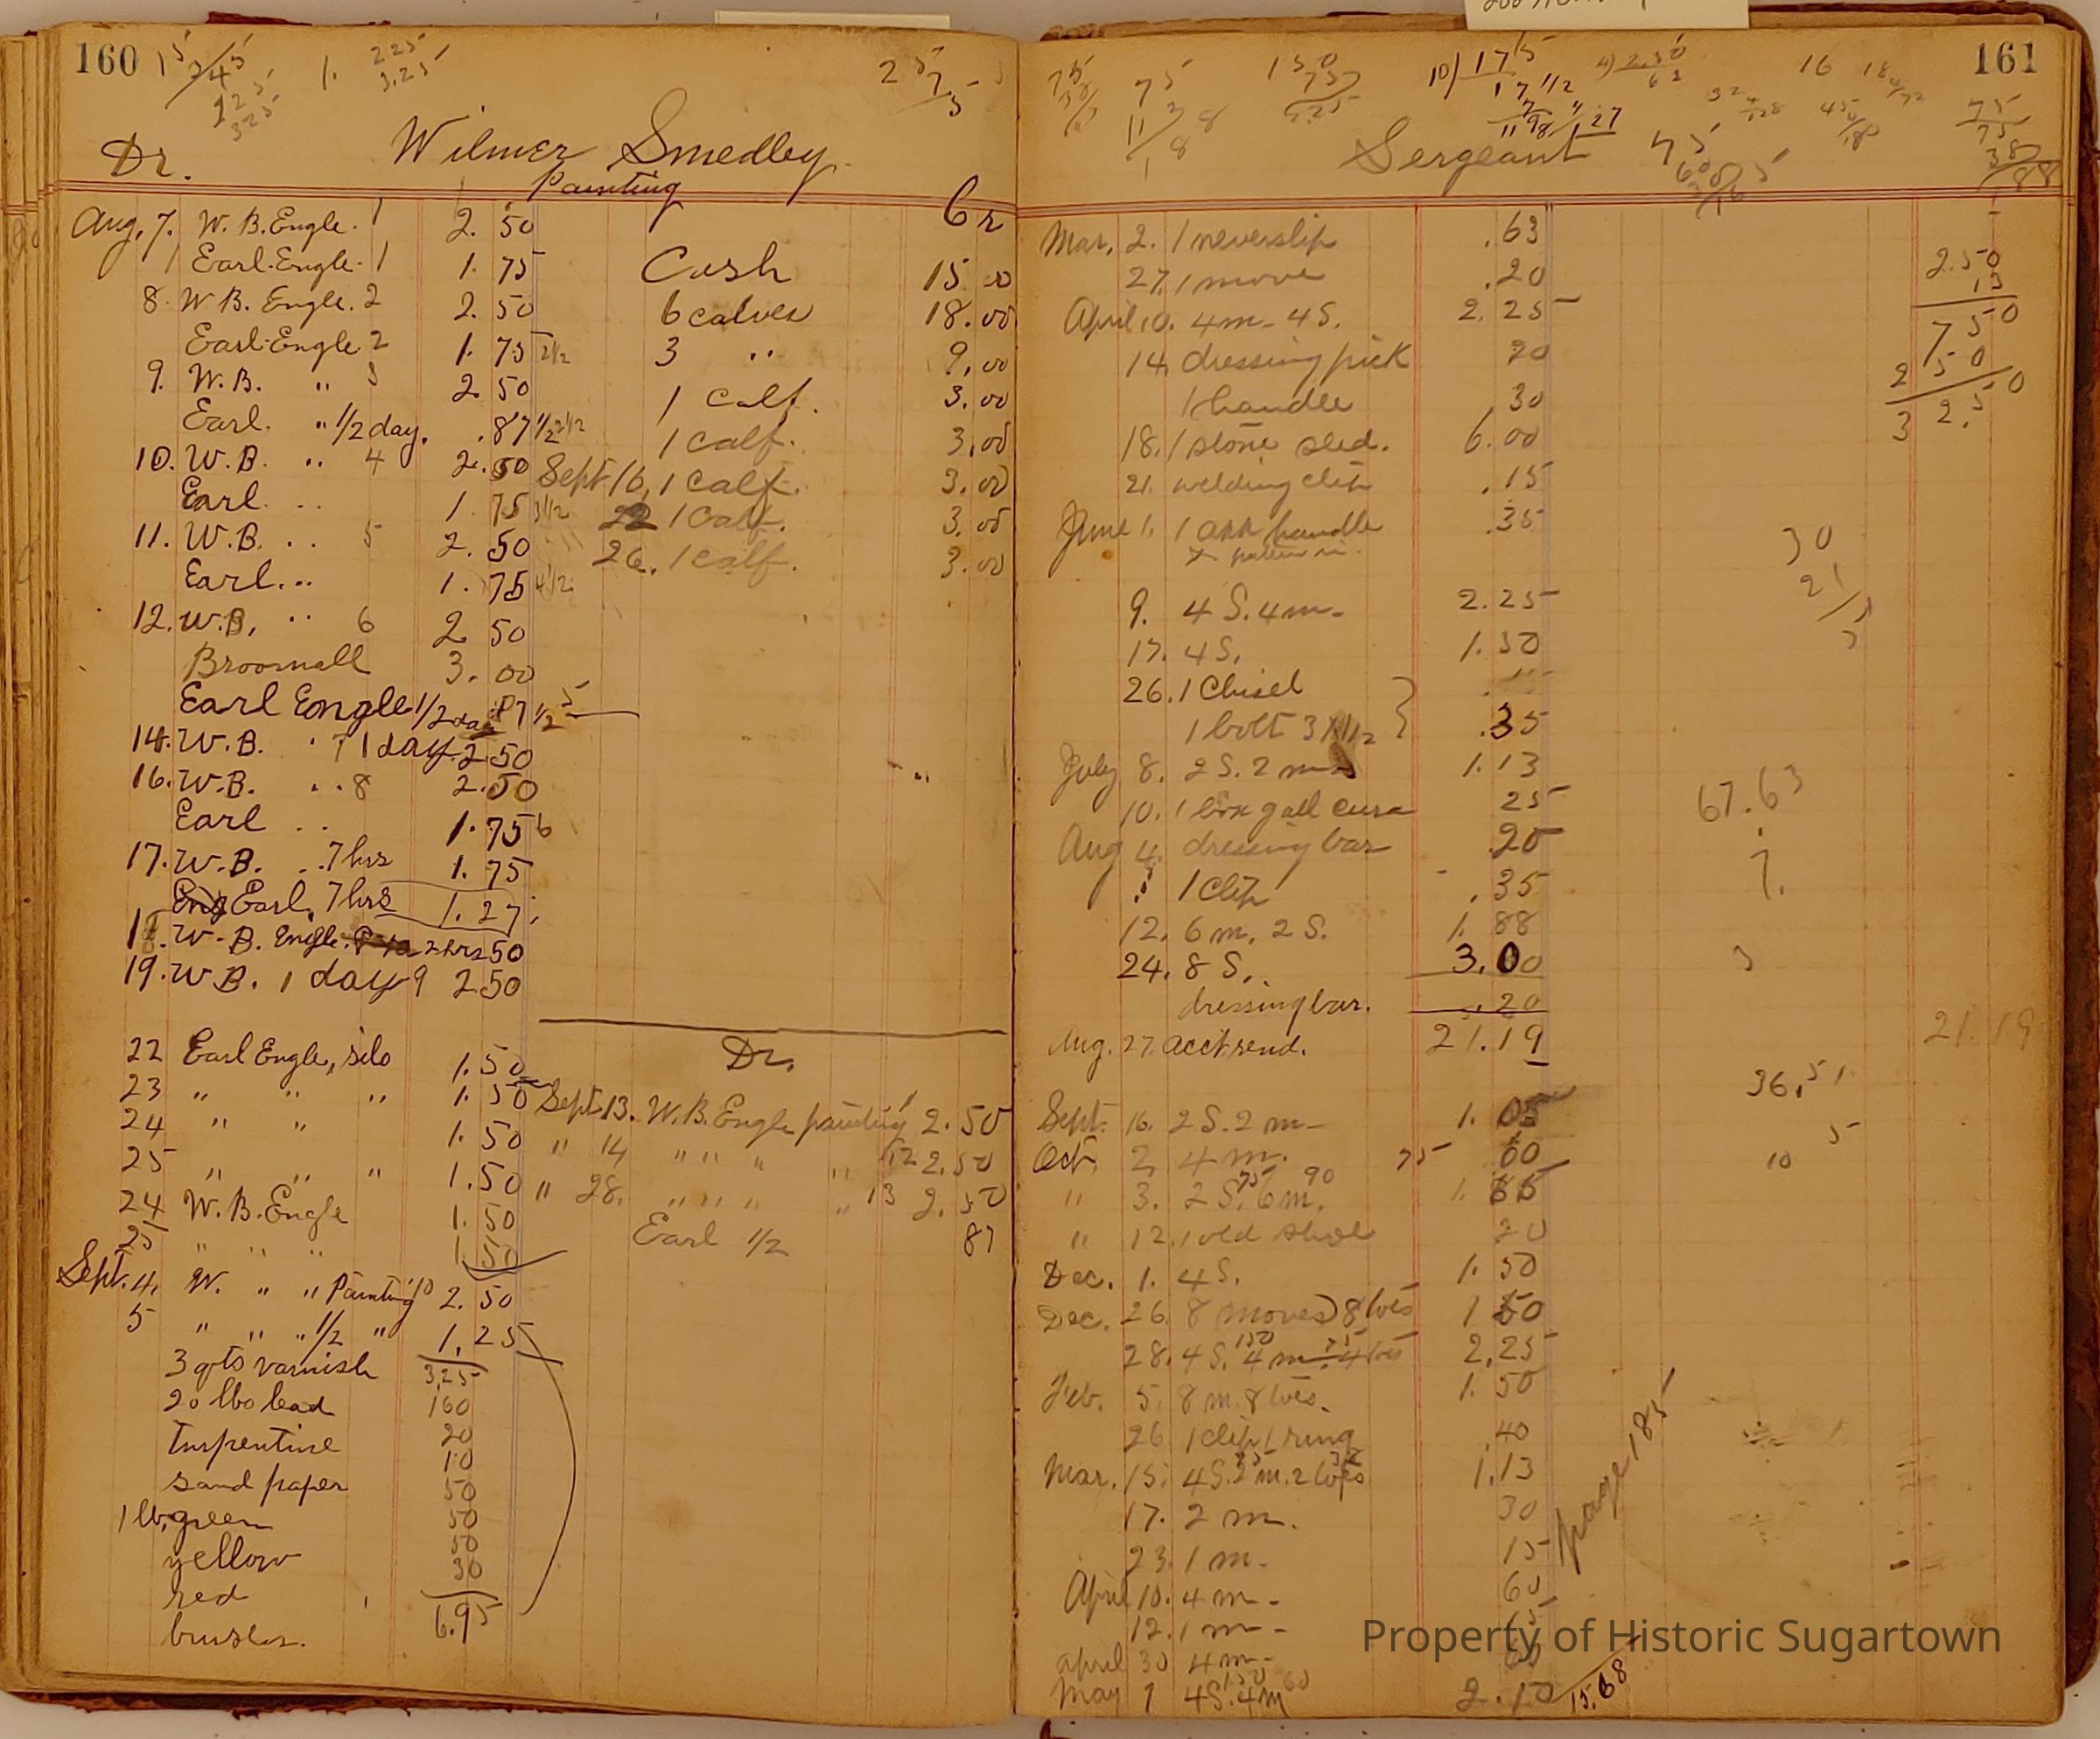 160
15
45
125
325
1.
2.25
3.25
Dr. Wilmer Smedley.
Painting
Cr
Aug. 7. W. B. Engle. 1 2.50
Earl Engle 1 1.75
8 W B. Engle. 2 2.50
Earl Engle. 2 1.75 2 1/2
9. W. B. " 3 2.50
Earl. " 1/2 day. .87 1/2 2 1/2
10. W. B. " 4 2.50
Earl. " 1.75 3 1/2
11. W. B. " 5 2.50
Earl. " 1.75 4 1/2
12. W. B. " 6 2.50
Broomall 3.00
Earl Engle 1/2 day .87 1/2 5
14. W. B. " 7 1 day 2.50
16. W. B. " 8 2.50
Earl " 1.75 6
17. W. B. " 7 hrs 1.75
Eng Earl, 7 hrs 1.27
W. B. Engle. 2 hrs 50
19. W. B. 1 day 9 2.50
22 Earl Engle, silo 1.50
23 " " " 1.50
24 " " 1.50
25 " " " 1.50
24 W. B. Engle 1.50
25 " " " 1.50
Sept. 4, W. " " Painting 10 2.50
5 " " " 1/2 " 1.25
3 qts varnish 3.25
20 lbs lead 160
Turpentine 20
sand paper 10
1 lb. green 50
yellow 50
red 50
brushes. 30
6.95
Cash 15.00
6 calves 18.00
3 " 9.00
1 calf. 3.00
1 calf. 3.00
Sept. 16, 1 calf. 3.00
22 1 calf. 3.00
26. 1 calf. 3.00
Dr.
Sept 13. W. B. Engle painting 11 2.50
" 14 " " " " 12 2.50
" 28. " " " " 13 2.50
Earl 1/2 87
161
75
150
75
10) 175
17 1/2
4) 2.50
62
16
Sergeant
Mar. 2. 1 neverslip .63
27. 1 move .20
April 10. 4 m - 4 S. 2.25
14. dressing pick 20
1 handle .30
18. 1 stone sled. 6.00
21. welding clip .15
June 1. 1 axx handle .35
9. 4 S. 4 m - 2.25
17. 4 S. 1.50
26. 1 Chisel
1 bolt 3 x 1/2 .35
July 8. 2 S. 2 m 1.13
10. 1 box gall cure 25
Aug 4. dressing bar .20
" 1 Clip .35
12. 6 m. 2 S. 1.88
24. 8 S. 3.00
dressing bar. .20
Aug. 27. acct rend. 21.19
Sept. 16. 2 S. 2 m - 1.05
Oct. 2, 4 m. 60
" 3. 2 S. 75 6 m. 90 1.65
" 12. 1 old shoe 20
Dec. 1. 4 S. 1.50
Dec. 26. 8 moves 8 toes 1 50
28. 4 S. 150 4 m. 75 4 toes 2.25
Feb. 5. 8 m. 8 toes. 1.50
26 1 clip 1 ring .40
Mar. 15. 4 S. 2 m. 2 toes 1.13
17. 2 m. 30
23. 1 m - 15
April 10. 4 m - 60
12. 1 m - 15
april 30 4 m - 60
May 1 4 S. 150 4 m 60 2.10
15.68
page 185
2.50
13
750
250
32.50
30
21
67.63
7.
3
21.19
36.51
5
10
Property of Historic Sugartown